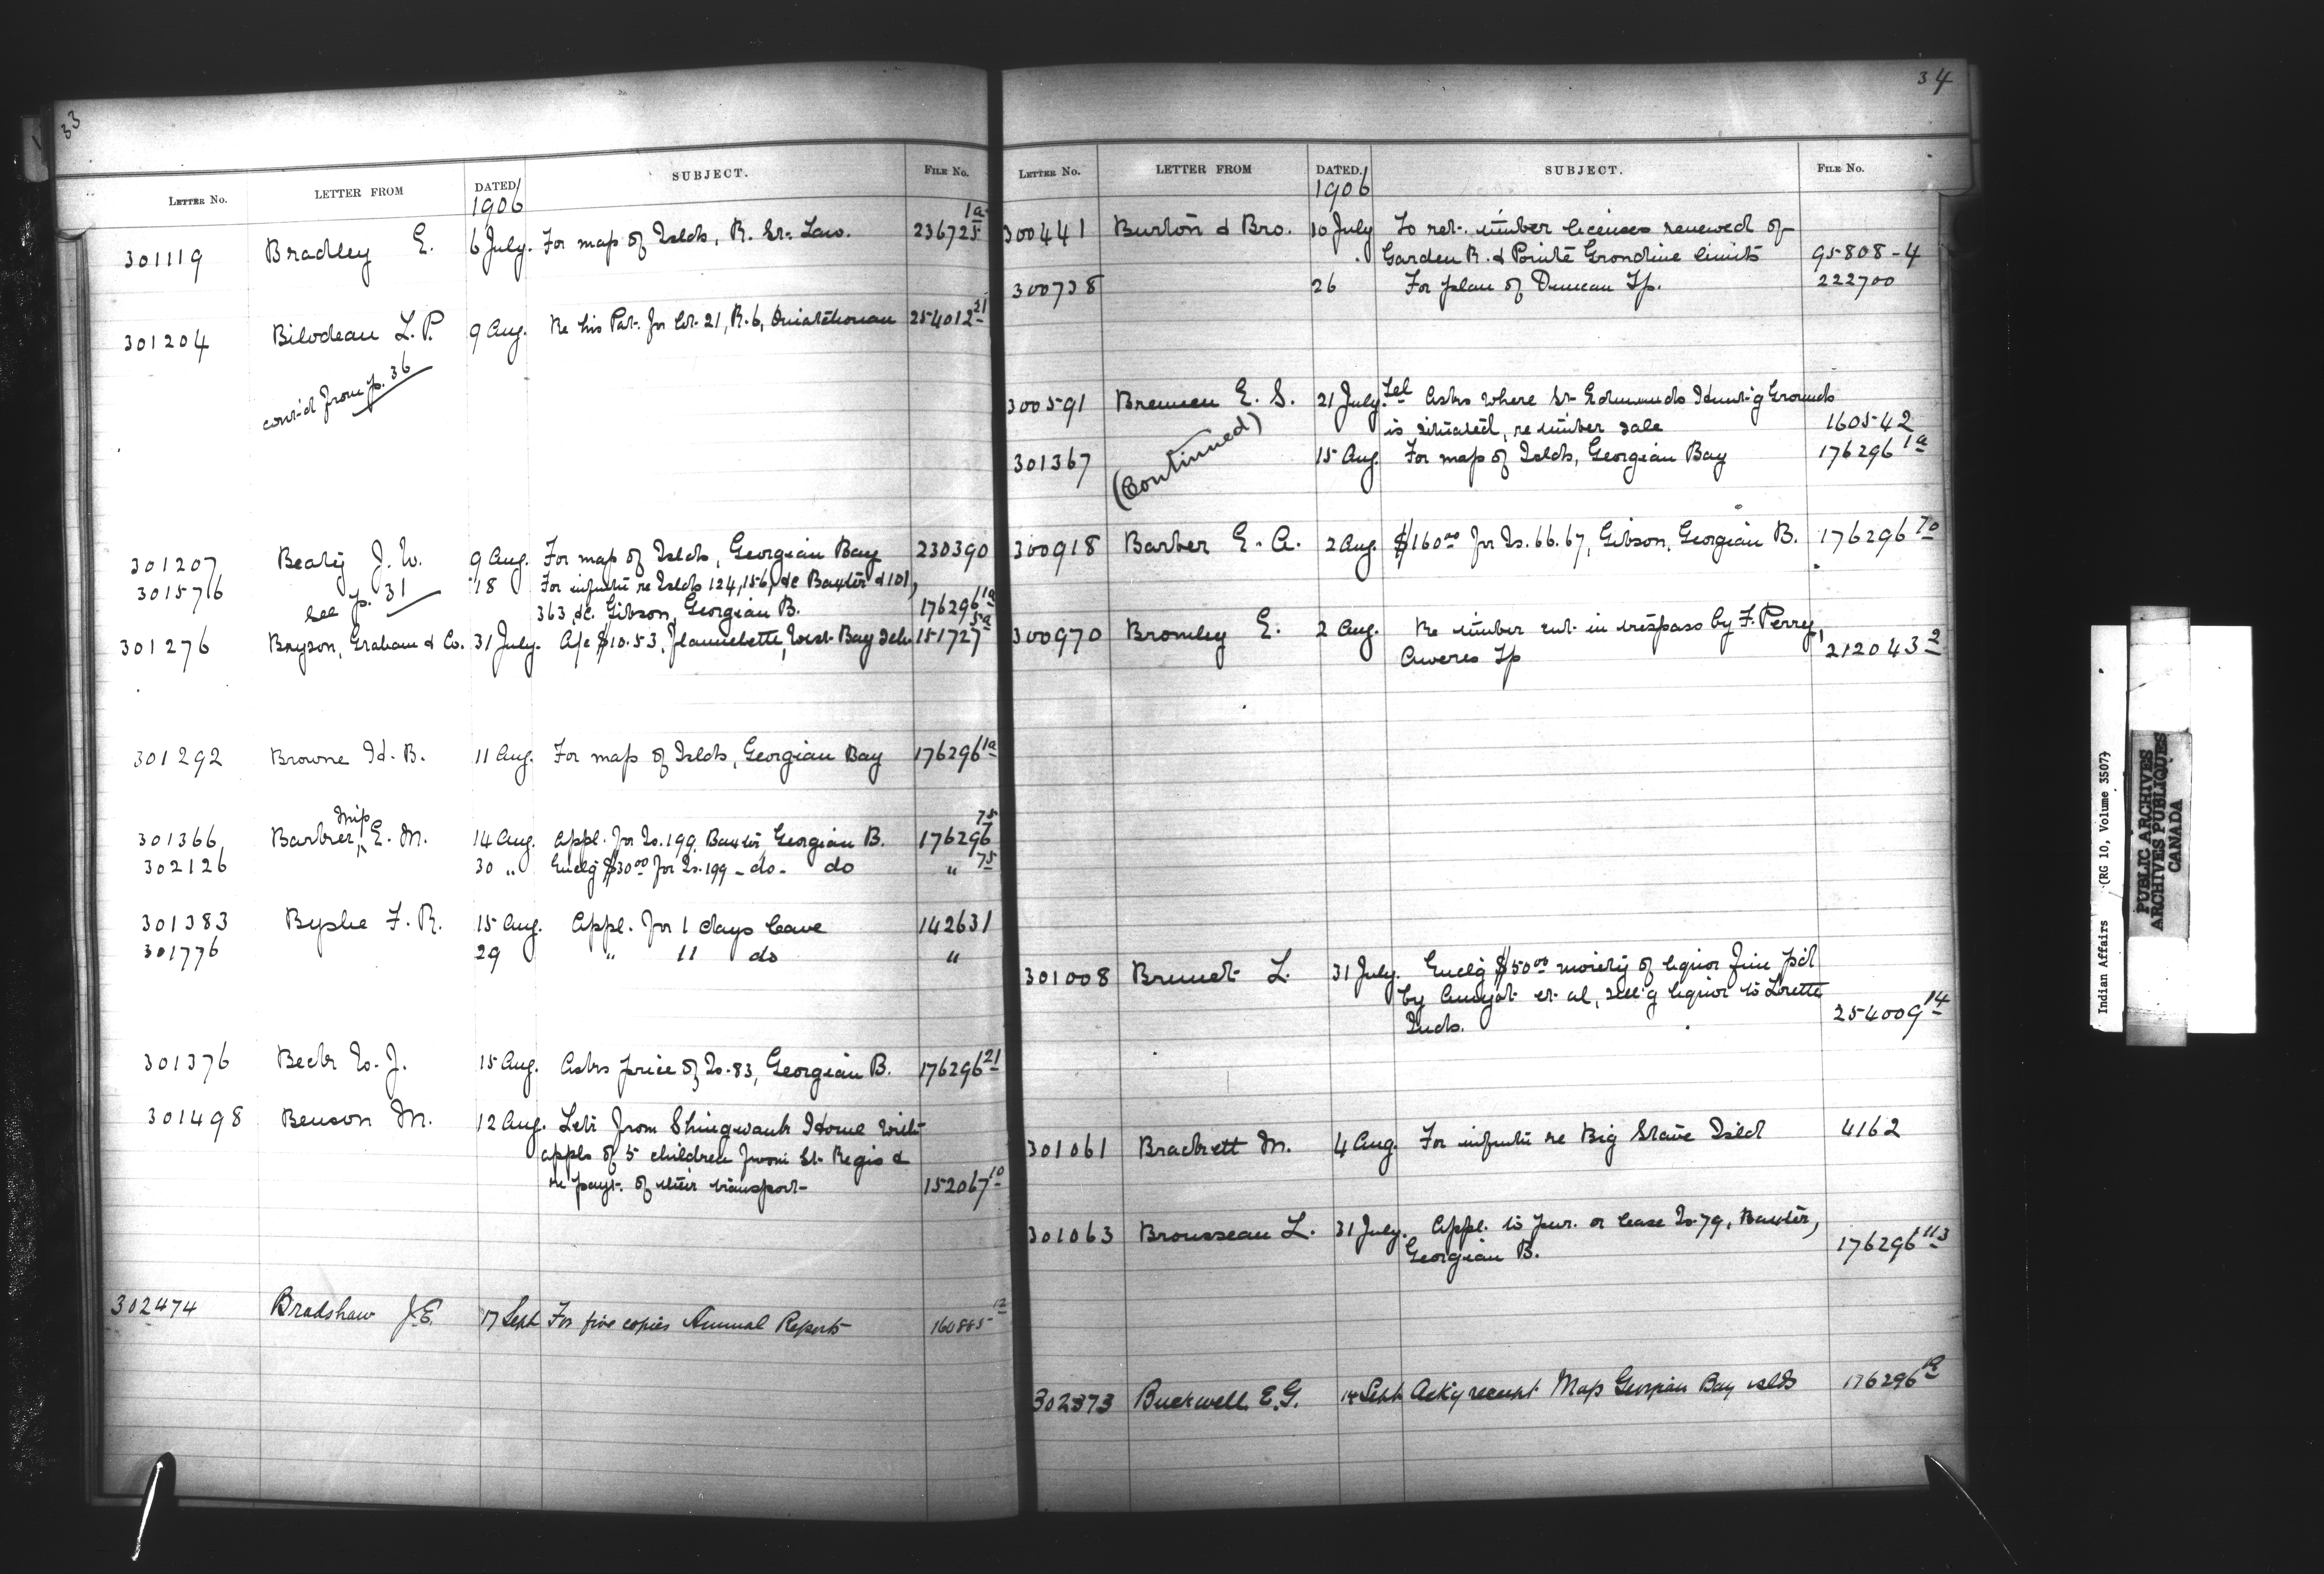 33
LETTER No. LETTER FROM DATED SUBJECT. FILE No.
1906
301119 Bradley E. 6 July. For map of Islds, R. St. Law. 236725 1a
301204 Bilodeau L. P. 9 Aug. Re his Pat. for lot 21, R. 6, Ouiatchouan 254012 21
cont'd from p. 36
301207 Beaty J. W. 9 Aug. For map of Islds, Georgian Bay 230390
301576 see p. 31 18 For infmtn re Islds 124, 156, &c Baxter & 101,
363, &c. Gibson, Georgian B. 176296 1a
301276 Bryson, Graham & Co. 31 July. A/c $10.53, flannelette, West Bay Sch. 151727 5a
301292 Browne H. B. 11 Aug. For map of Islds, Georgian Bay 176296 1a
301366 Barber, Miss E. M. 14 Aug. Appl. for Is. 199, Baxter, Georgian B. 176296 75
302126 30 " Enclg $30 00 for Is. 199 - do - do " 75
301383 Byshe F. R. 15 Aug. Appl. for 1 days leave 142631
301776 29 " 11 do "
301376 Beck W. J. 15 Aug. Asks price of Is. 83, Georgian B. 176296 21
301498 Benson M. 12 Aug. Letr from Shingwauk Home with
appls of 5 children from St. Regis &
re payt. of their transport 152067 10
302474 Bradshaw J. E. 17 Sept For five copies Annual Reports 160885 12
34
LETTER No. LETTER FROM DATED. SUBJECT. FILE No.
1906
300441 Burton & Bro. 10 July To ret. timber licenses renewed of
Garden R. & Pointe Grondine limits 95808-4
300738 26 For plan of Duncan Tp. 222700
300591 Bremen E. S. 21 July. Tel Asks where St. Edmunds Hunt'g Grounds
is situated, re timber sale 160542
301367 (Continued) 15 Aug. For map of Islds, Georgian Bay 176296 1a
300918 Barber E. A. 2 Aug. $160 00 for Is. 66. 67, Gibson, Georgian B. 176296 70
300970 Bromley E. 2 Aug. Re timber cut in trespass by F. Perry,
Aweres Tp 212043 2
301008 Brunet L. 31 July. Enclg $50 00 moiety of liquor fine p'd
by Amyot et al, sell'g liquor to Lorette
Inds. 254009 14
301061 Brackett M. 4 Aug. For infmtn re Big Stave Isld 4162
301063 Brousseau L. 31 July. Appl. to pur. or lease Is. 79, Baxter,
Georgian B. 176296 113
302373 Buckwell E. G. 14 Sept Ack'g receipt Map Georgian Bay islds 176296 1a
Indian Affairs (RG 10, Volume 3507)
PUBLIC ARCHIVES
ARCHIVES PUBLIQUES
CANADA